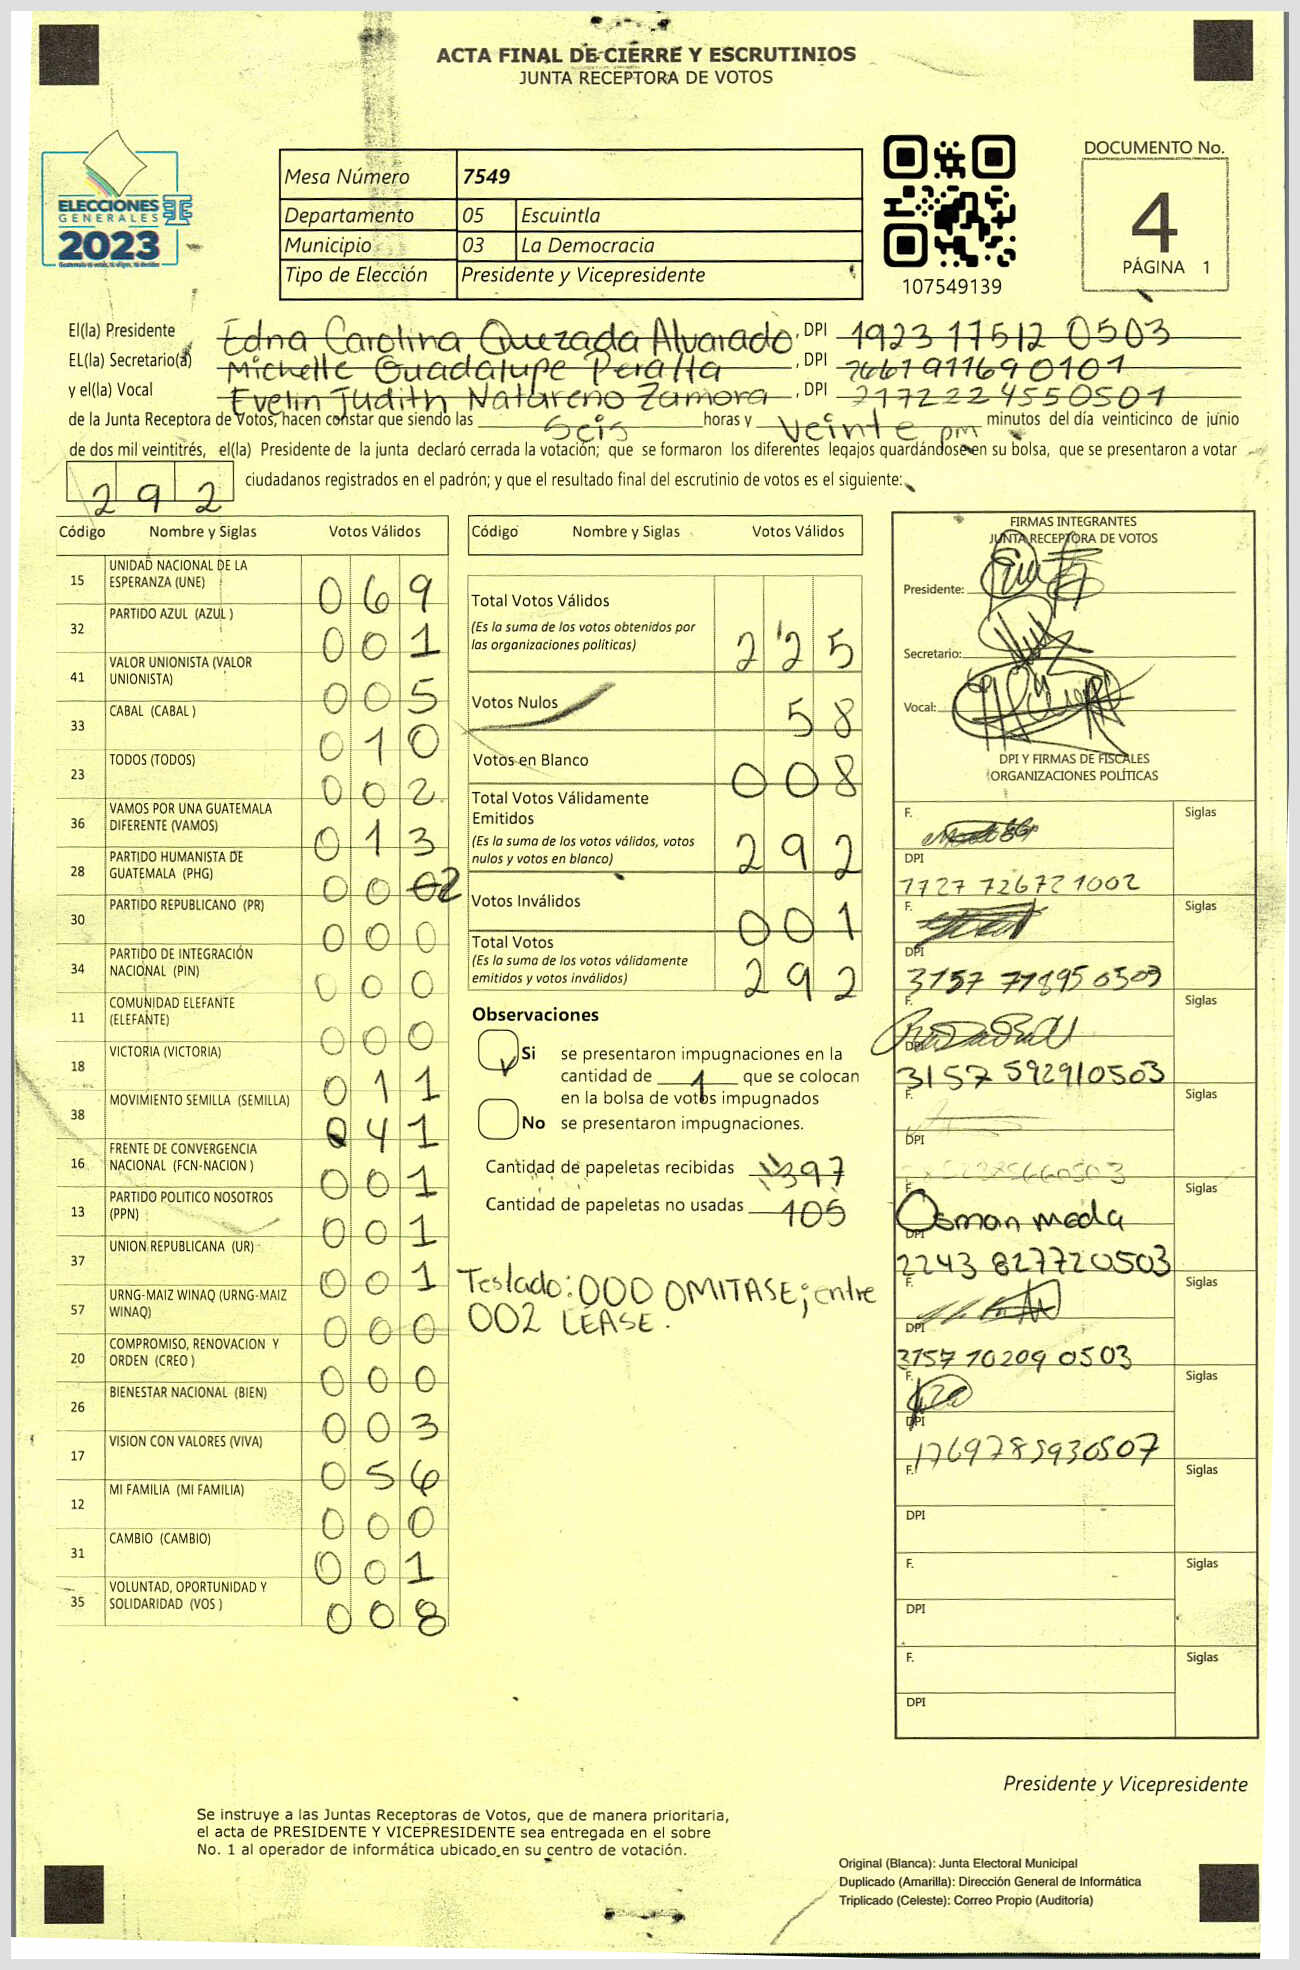 ACTA FINAL DE CIERRE Y ESCRUTINIOS
JUNTA RECEPTORA DE VOTOS
ELECCIONES
GENERALES
2023
Mesa Número 7549
Departamento 05 Escuintla
Municipio 03 La Democracia
Tipo de Elección Presidente y Vicepresidente
107549139
DOCUMENTO No.
4
PÁGINA 1
El(la) Presidente Edna Carolina Quezada Alvarado, DPI 1923 17512 0503
EL(la) Secretario(a) Michelle Guadalupe Peralta, DPI 2661911690101
y el(la) Vocal Evelin Judith Natareno Zamora, DPI 2172224550501
de la Junta Receptora de Votos, hacen constar que siendo las Seis horas y Veinte pm minutos del día veinticinco de junio
de dos mil veintitrés, el(la) Presidente de la junta declaró cerrada la votación; que se formaron los diferentes legajos guardándose en su bolsa, que se presentaron a votar
292 ciudadanos registrados en el padrón; y que el resultado final del escrutinio de votos es el siguiente:
Código Nombre y Siglas Votos Válidos
15 UNIDAD NACIONAL DE LA
ESPERANZA (UNE) 069
32 PARTIDO AZUL (AZUL ) 001
41 VALOR UNIONISTA (VALOR
UNIONISTA) 005
33 CABAL (CABAL ) 010
23 TODOS (TODOS) 002
36 VAMOS POR UNA GUATEMALA
DIFERENTE (VAMOS) 013
28 PARTIDO HUMANISTA DE
GUATEMALA (PHG) 0002
30 PARTIDO REPUBLICANO (PR) 000
34 PARTIDO DE INTEGRACIÓN
NACIONAL (PIN) 000
11 COMUNIDAD ELEFANTE
(ELEFANTE) 000
18 VICTORIA (VICTORIA) 011
38 MOVIMIENTO SEMILLA (SEMILLA) 041
16 FRENTE DE CONVERGENCIA
NACIONAL (FCN-NACION ) 001
13 PARTIDO POLITICO NOSOTROS
(PPN) 001
37 UNION REPUBLICANA (UR) 001
57 URNG-MAIZ WINAQ (URNG-MAIZ
WINAQ) 000
20 COMPROMISO, RENOVACION Y
ORDEN (CREO ) 000
26 BIENESTAR NACIONAL (BIEN) 003
17 VISION CON VALORES (VIVA) 056
12 MI FAMILIA (MI FAMILIA) 000
31 CAMBIO (CAMBIO) 001
35 VOLUNTAD, OPORTUNIDAD Y
SOLIDARIDAD (VOS ) 008
Código Nombre y Siglas Votos Válidos
Total Votos Válidos
(Es la suma de los votos obtenidos por
las organizaciones políticas) 225
Votos Nulos 58
Votos en Blanco 008
Total Votos Válidamente
Emitidos
(Es la suma de los votos válidos, votos
nulos y votos en blanco) 292
Votos Inválidos 001
Total Votos
(Es la suma de los votos válidamente
emitidos y votos inválidos) 292
Observaciones
Si se presentaron impugnaciones en la
cantidad de 1 que se colocan
en la bolsa de votos impugnados
No se presentaron impugnaciones.
Cantidad de papeletas recibidas 397
Cantidad de papeletas no usadas 105
Teslado: 000 OMITASE; entre
002 LEASE.
FIRMAS INTEGRANTES
JUNTA RECEPTORA DE VOTOS
Presidente:
Secretario:
Vocal:
DPI Y FIRMAS DE FISCALES
ORGANIZACIONES POLÍTICAS
F. Siglas
DPI
7727 72672 1002
F. Siglas
DPI
3157 71895 0503
F. Siglas
DPI
3157 592910503
F. Siglas
DPI
F. Siglas
Osman meda
DPI
2243 827720503
F. Siglas
DPI
3157 10209 0503
F. Siglas
DPI
1769785930507
F. Siglas
DPI
F. Siglas
DPI
F. Siglas
DPI
Presidente y Vicepresidente
Se instruye a las Juntas Receptoras de Votos, que de manera prioritaria,
el acta de PRESIDENTE Y VICEPRESIDENTE sea entregada en el sobre
No. 1 al operador de informática ubicado en su centro de votación.
Original (Blanca): Junta Electoral Municipal
Duplicado (Amarilla): Dirección General de Informática
Triplicado (Celeste): Correo Propio (Auditoría)